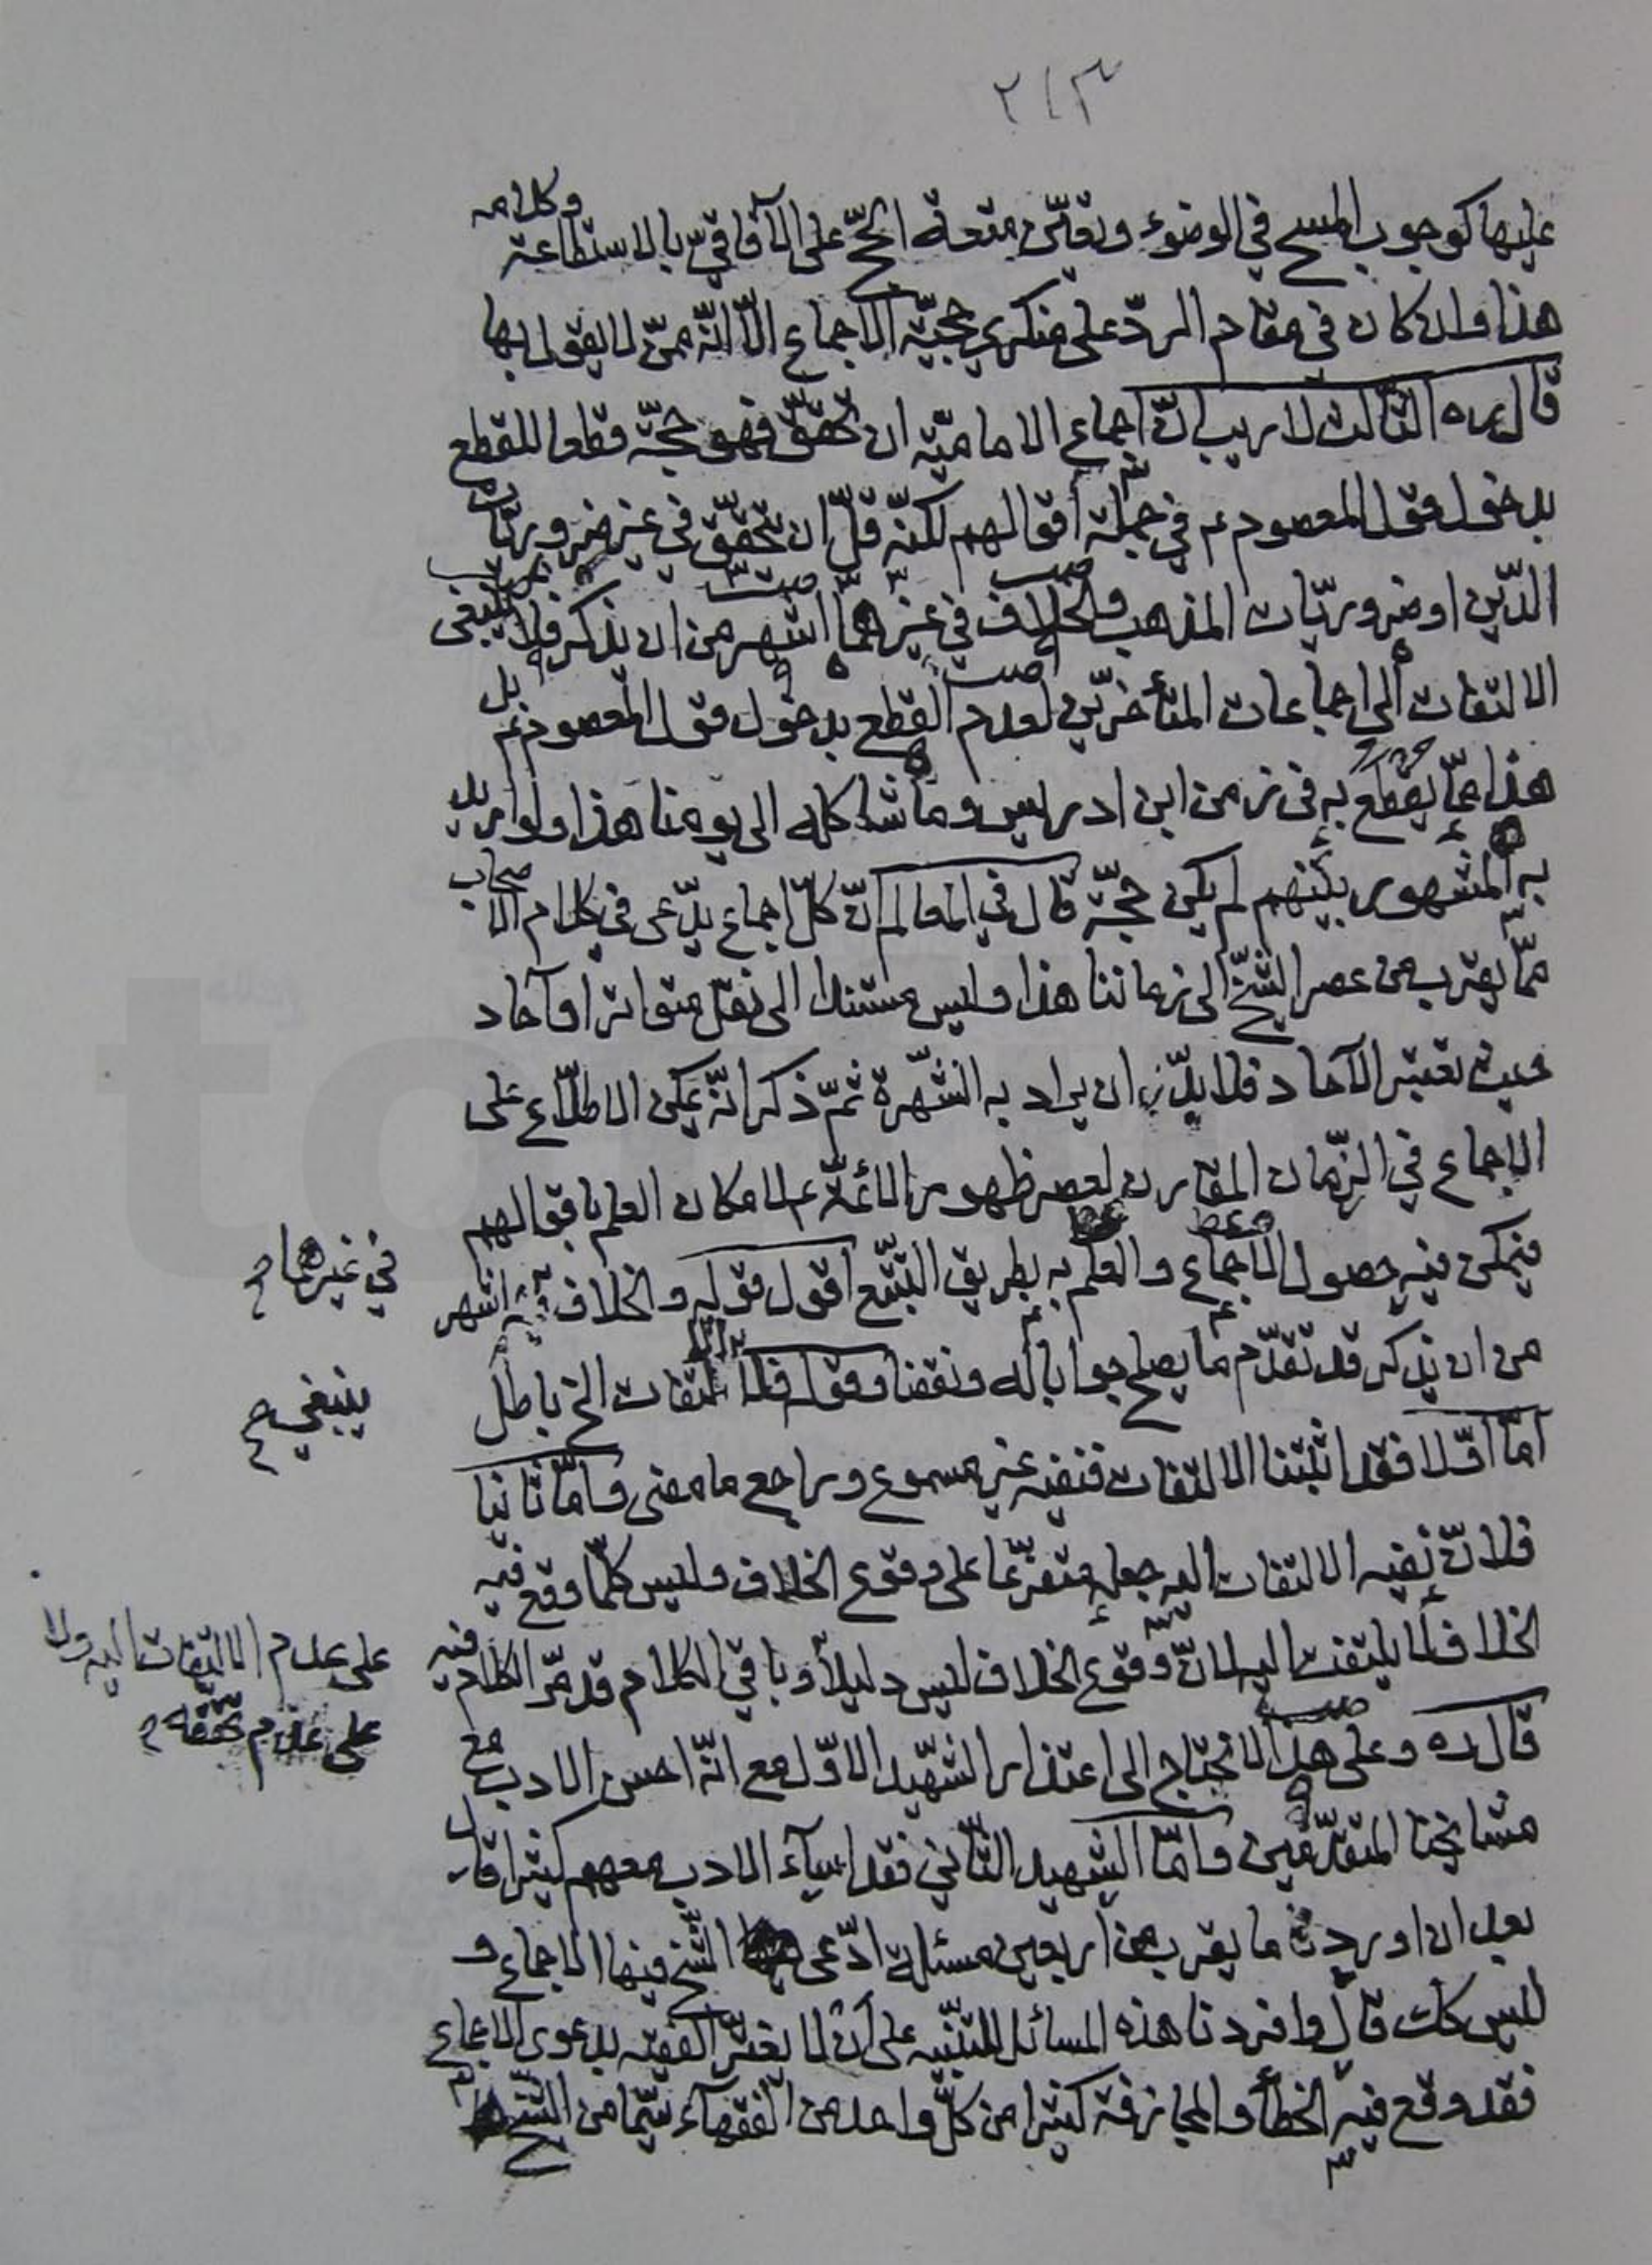 ٢١٣
عليها كوجوب المسح في الوضوء وتعيّن متعة الحجّ على الآفاقيّ بالاستطاعة وكلامه
هذا وان كان في مقام الردّ على منكري حجيّة الاجماع الّا انّه ممّن لا يقول بها
قال ره الثالث لا ريب انّ اجماع الاماميّة ان تحقّق فهو حجّة قطعا للقطع
بدخول قول المعصوم ع في جملة أقوالهم لكنّه قلّ ان يتحقّق في غير ضروريّات
الدّين او ضروريّات المذهب والخلاف في غيرهما اشهر من ان يذكر فلا ينبغي
الالتفات الى اجماعات المتأخّرين لعدم القطع بدخول قول المعصوم ع بل
هذا ممّا يقطع به في زمن ابن ادريس وما شاكله الى يومنا هذا ولو اريد
به المشهور بينهم لم يكن حجّة قال في المعالم انّ كلّ اجماع يدّعى في كلام الاصحاب
ممّا يقرب من عصر الشّيخ الى زماننا هذا وليس مستندا الى نقل متواتر او آحاد
حيث تعتبر الآحاد فلا بدّ ان يراد به الشّهرة ثمّ ذكر انّه يمكن الاطلّاع على
الاجماع في الزّمان المقارن لعصر ظهور الأئمّة ع لامكان العلم باقوالهم
فيمكن فيه حصول الاجماع والعلم به بطريق التتبّع اقول قوله والخلاف اشهر
في غيرهما
من ان يذكر قد تقدّم ما يصلح جوابا له ونقضا وقوله فلا التفات الخ باطل
ينبغي
امّا اوّلا فقد اثبتنا الالتفات فنفيه غير مسموع وراجع ما مضى وامّا ثانيا
فلانّ نفيه الالتفات اليه جعله متفرّعا على وقوع الخلاف وليس كلّما وقع فيه
الخلاف لا يلتفت اليه لانّ وقوع الخلاف ليس دليلا وباقي الكلام قد مرّ الكلام فيه
على عدم الالتفات اليه ولا
على عدم تحقّقه
قال ره وعلى هذا لا نحتاج الى اعتذار الشّهيد الاوّل مع انّه احسن الادب مع
مشايخنا المتقدّمين وامّا الشهيد الثّاني فقد اساء الادب معهم كثيرا قال
بعد ان اورد ما يقرب من اربعين مسئلة ادّعى الشّيخ فيها الاجماع و
ليس كك قال وافردنا هذه المسائل للتنبيه على ان لا يغترّ الفقيه بدعوى الاجماع
فقد وقع فيه الخطأ والمجازفة كثيرا من كلّ واحد من الفقهاء سيّما من الشّيخ